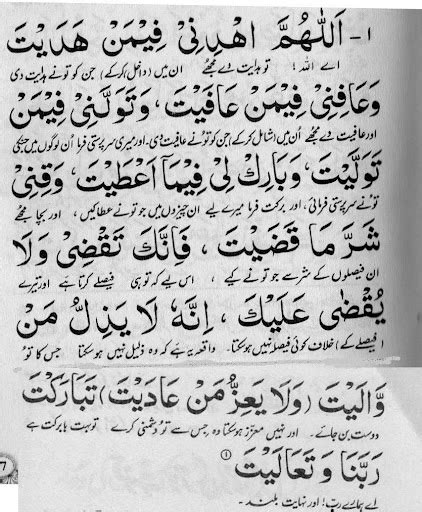 ۱- اَللّٰهُمَّ اهْدِنِیْ فِیْمَنْ هَدَیْتَ
اے اللہ! تو ہدایت دے مجھے ان میں (داخل کرکے) جن کو تو نے ہدایت دی
وَعَافِنِیْ فِیْمَنْ عَافَیْتَ، وَتَوَلَّنِیْ فِیْمَنْ
اور عافیت دے مجھے اُن میں (شامل کرکے) جن کو تو نے عافیت دی۔ اور میری سرپرستی فرما اُن لوگوں میں جنکی
تَوَلَّیْتَ، وَبَارِكْ لِیْ فِیْمَا اَعْطَیْتَ، وَقِنِیْ
تو نے سرپرستی فرمائی، اور برکت فرما میرے لیے ان چیزوں میں جو تو نے عطا کیں، اور بچا مجھے
شَرَّ مَا قَضَیْتَ، فَاِنَّكَ تَقْضِیْ وَلَا
ان فیصلوں کے شر سے جو تو نے کیے، اس لیے کہ تو ہی فیصلے کرتا ہے اور تیرے
یُقْضٰی عَلَیْكَ، اِنَّهٗ لَا یَذِلُّ مَنْ
(فیصلے کے) خلاف کوئی فیصلہ نہیں ہوسکتا۔ واقعہ یہ ہے کہ وہ ذلیل نہیں ہوسکتا جس کا تو
وَّالَیْتَ (وَلَا یَعِزُّ مَنْ عَادَیْتَ) تَبَارَكْتَ
دوست بن جائے۔ اور نہیں معزز ہوسکتا وہ جس سے تو دشمنی کرے تو بہت بابرکت ہے
رَبَّنَا وَتَعَالَیْتَ
اے ہمارے رب! اور نہایت بلند۔